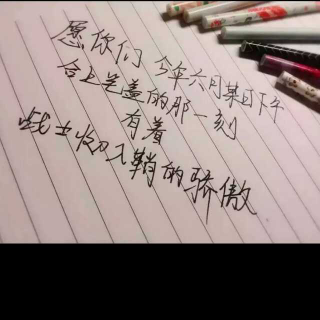 愿你们 今年六月某日下午
合上笔盖的那一刻
有着
战士收刀入鞘的骄傲